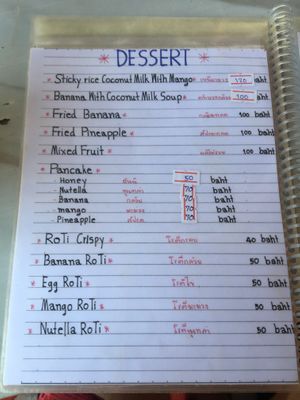 * DESSERT *
* Sticky rice Coconut Milk With Mango * 120 baht
* Banana With Coconut Milk Soup * 100 baht
* Fried Banana * 100 baht
* Fried Pineapple * 100 baht
* Mixed Fruit * 100 baht
* Pancake *
- Honey 50 baht
- Nutella 70 baht
- Banana กล้วย 70 baht
- mango มะม่วง 70 baht
- Pineapple 70 baht
* RoTi Crispy * โรตีกรอบ 40 baht
* Banana RoTi * โรตีกล้วย 50 baht
* Egg RoTi * โรตีไข่ 50 baht
* Mango RoTi * โรตีมะม่วง 50 baht
* Nutella RoTi * โรตีนูเทลล่า 50 baht